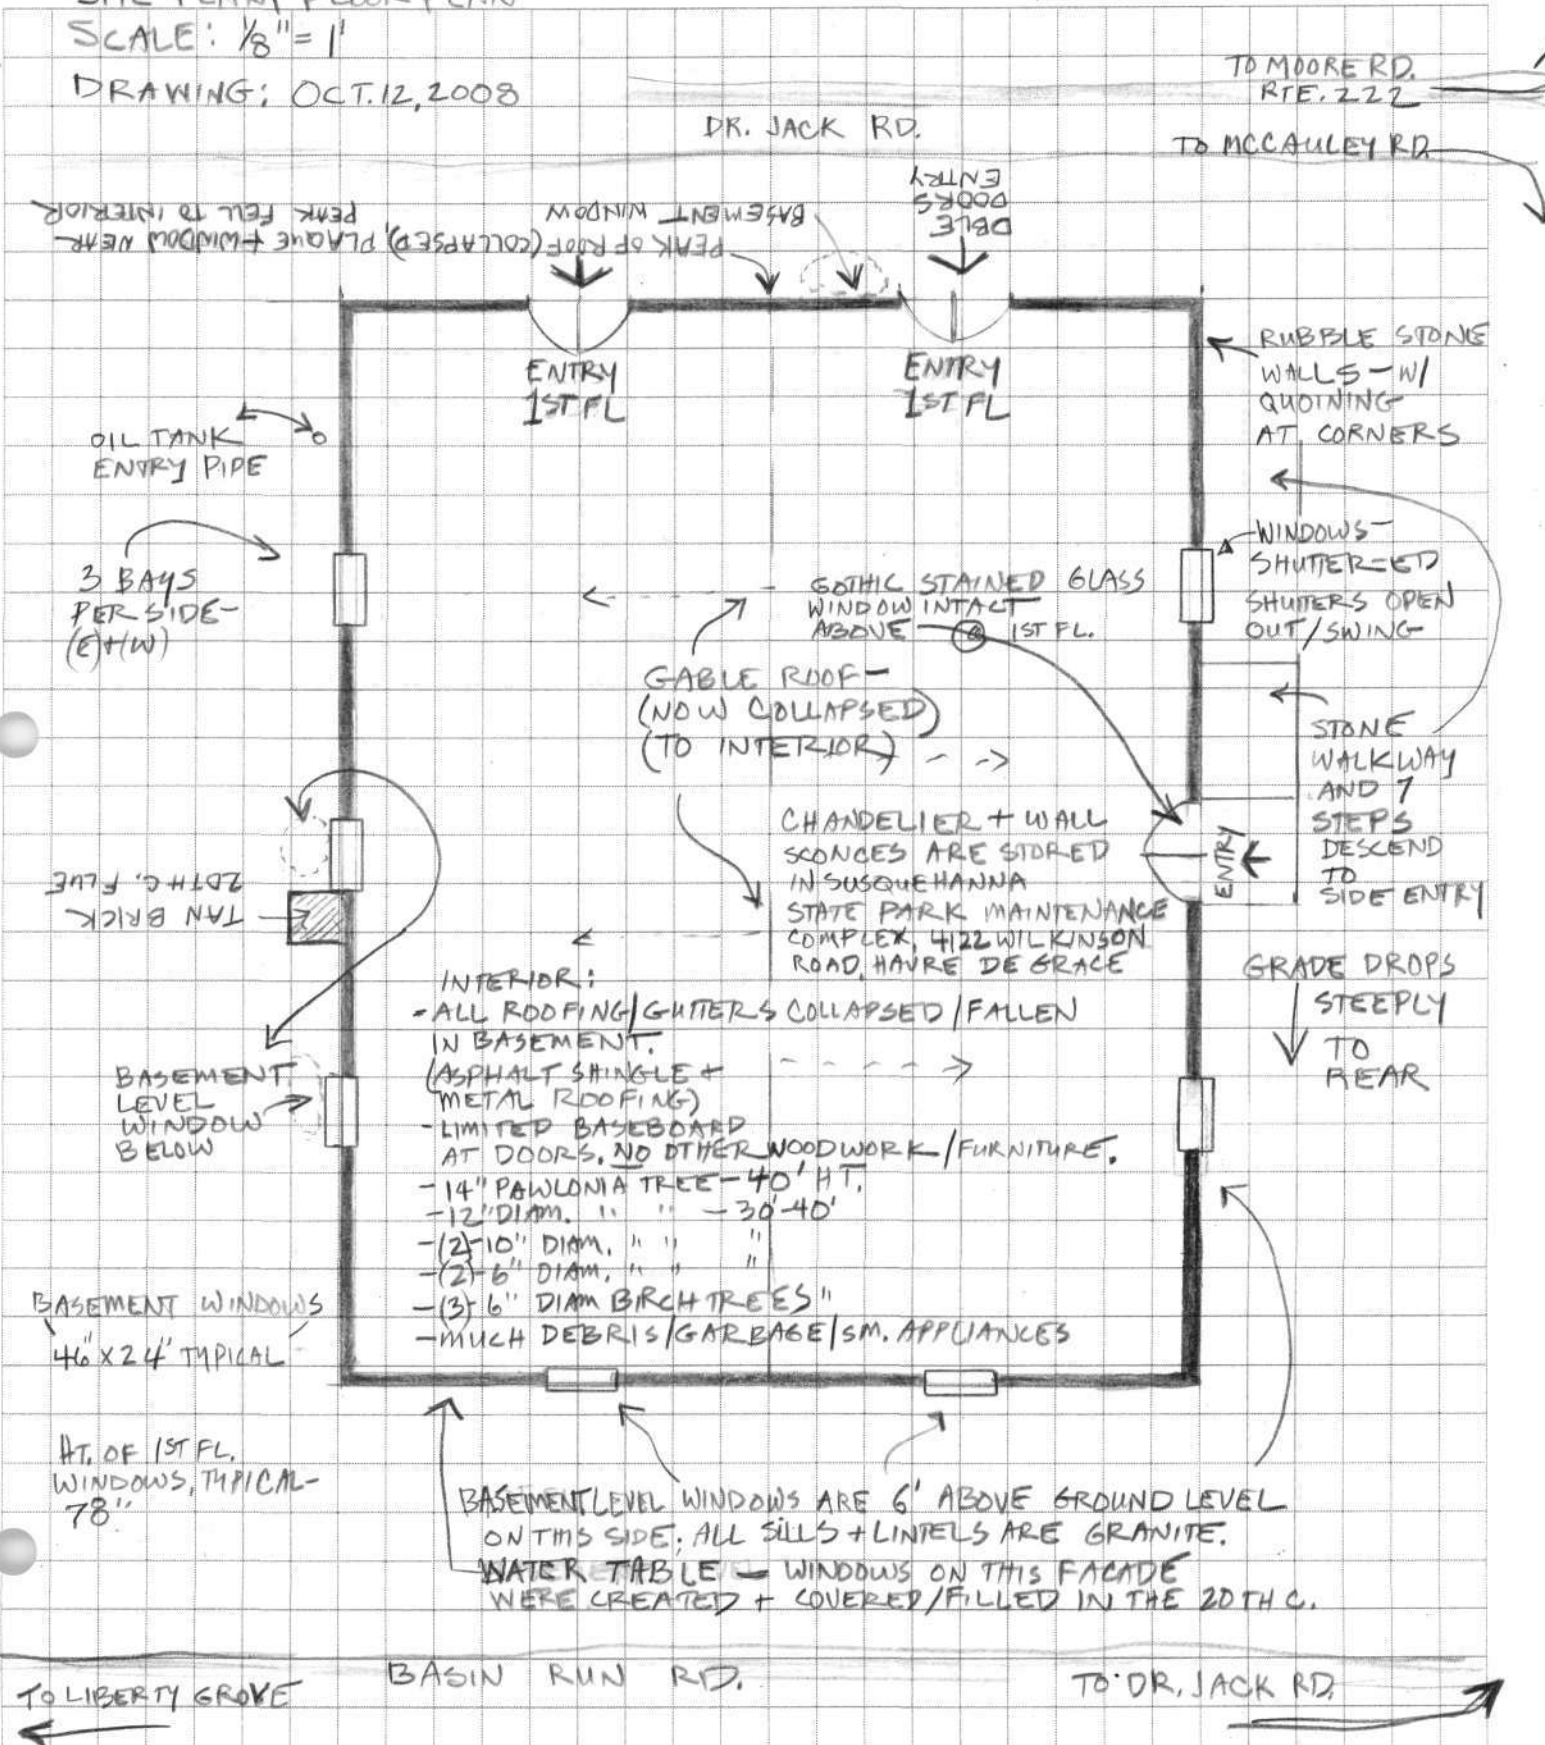 SITE PLAN/FLOOR PLAN
SCALE: 1/8" = 1'
DRAWING: OCT. 12, 2008
TO MOORE RD.
RTE. 222
DR. JACK RD.
TO MCCAULEY RD
DBLE
DOORS
ENTRY
BASEMENT WINDOW
PEAK OF ROOF (COLLAPSED), PLAQUE + WINDOW NEAR
PEAK FELL TO INTERIOR
ENTRY
1ST FL
ENTRY
1ST FL
RUBBLE STONE
WALLS - W/
QUOINING
AT CORNERS
OIL TANK
ENTRY PIPE
3 BAYS
PER SIDE-
(E)+(W)
WINDOWS-
SHUTTER-ED
SHUTTERS OPEN
OUT/SWING
GOTHIC STAINED GLASS
WINDOW INTACT
ABOVE @ 1ST FL.
GABLE ROOF-
(NOW COLLAPSED)
(TO INTERIOR)
STONE
WALKWAY
AND 7
STEPS
DESCEND
TO
SIDE ENTRY
ENTRY
CHANDELIER + WALL
SCONCES ARE STORED
IN SUSQUEHANNA
STATE PARK MAINTENANCE
COMPLEX, 4122 WILKINSON
ROAD, HAVRE DE GRACE
TAN BRICK
20TH C. FLUE
GRADE DROPS
STEEPLY
TO
REAR
INTERIOR:
- ALL ROOFING/GUTTERS COLLAPSED/FALLEN
IN BASEMENT.
(ASPHALT SHINGLE +
METAL ROOFING)
- LIMITED BASEBOARD
AT DOORS. NO OTHER WOODWORK/FURNITURE.
- 14" PAWLONIA TREE - 40' HT.
- 12" DIAM. " " - 30'-40'
- (2)-10" DIAM. " " "
- (2)-6" DIAM. " " "
- (3)-6" DIAM BIRCH TREES "
- MUCH DEBRIS/GARBAGE/SM. APPLIANCES
BASEMENT
LEVEL
WINDOW
BELOW
BASEMENT WINDOWS
46" X 24" TYPICAL
HT. OF 1ST FL.
WINDOWS, TYPICAL-
78"
BASEMENT LEVEL WINDOWS ARE 6' ABOVE GROUND LEVEL
ON THIS SIDE; ALL SILLS + LINTELS ARE GRANITE.
WATER TABLE - WINDOWS ON THIS FACADE
WERE CREATED + COVERED/FILLED IN THE 20TH C.
BASIN RUN RD.
TO LIBERTY GROVE
TO DR. JACK RD.